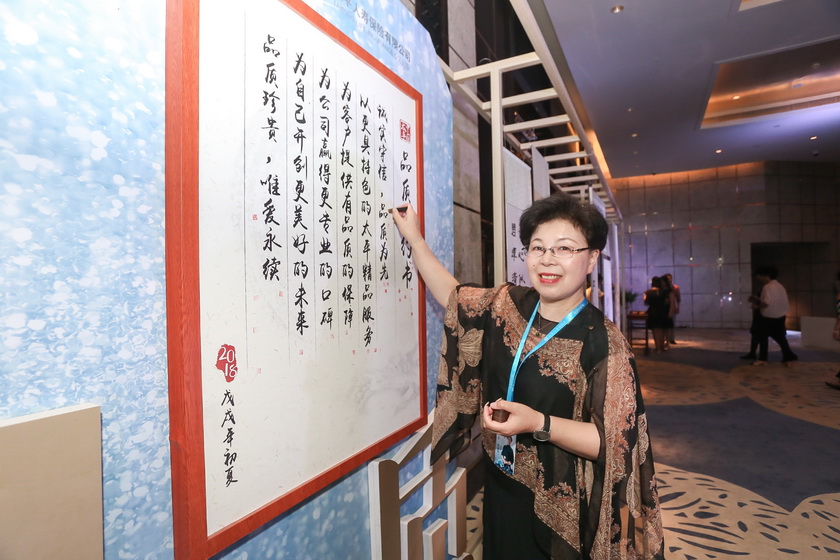 人寿保险有限公司
品质
行书
诚实守信，品质为先
以更具特色的太平精品服务
为客户提供有品质的保障
为公司赢得更专业的口碑
为自己开创更美好的未来
品质珍贵，唯爱永续
2018
戊戌年初夏